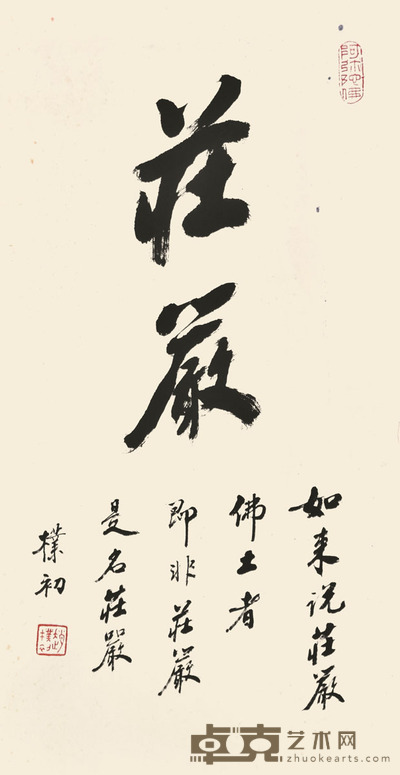 莊
嚴
如来说莊嚴
佛土者
即非莊嚴
是名莊嚴
樸初
卓克艺术网
zhuokearts.com